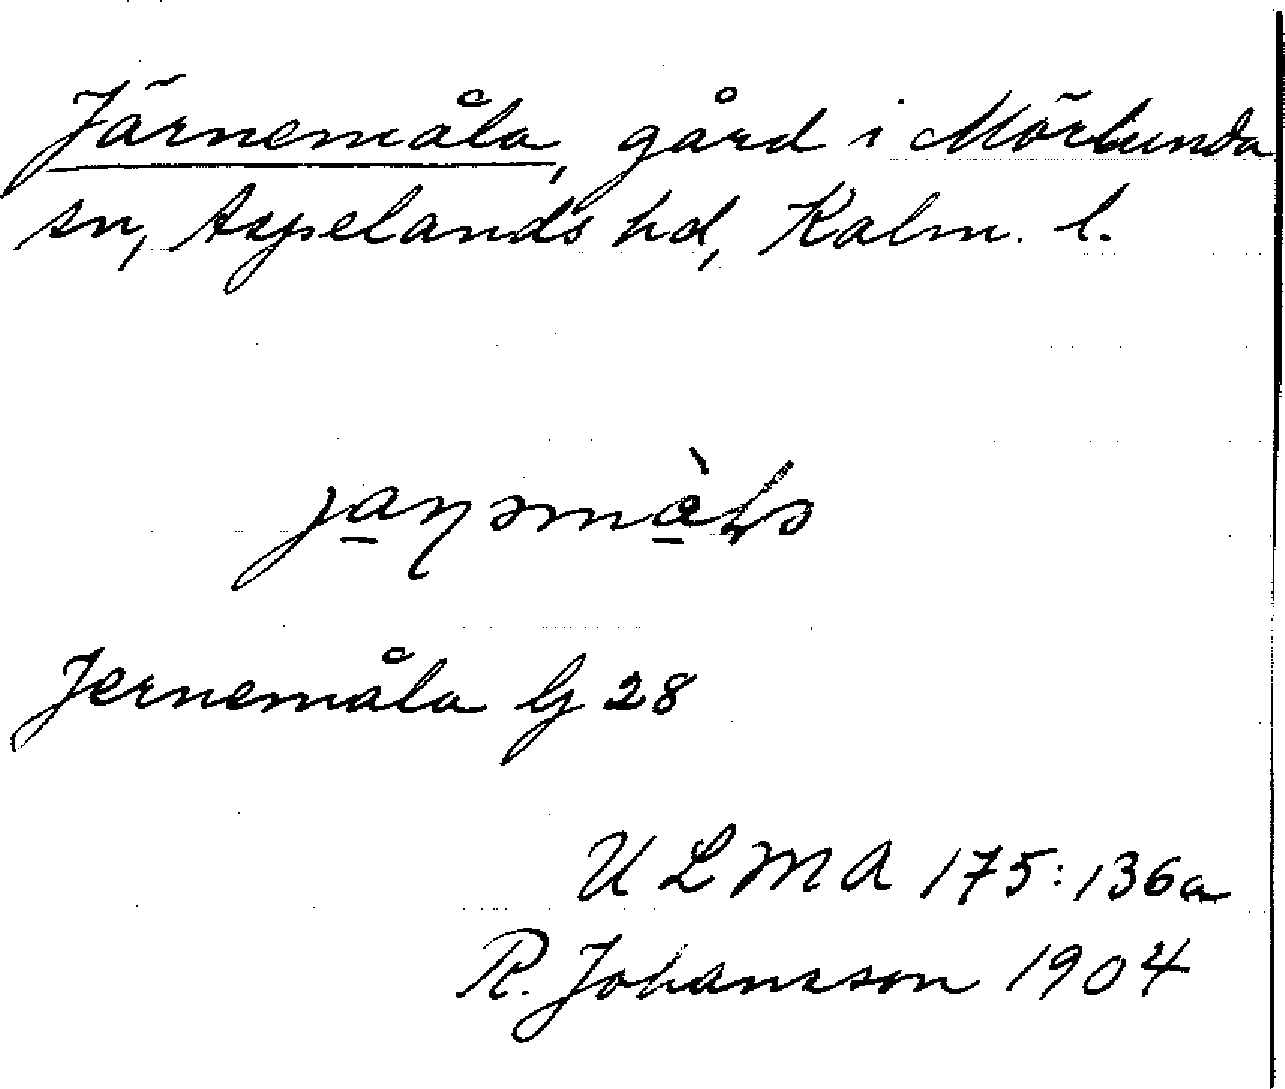 Järnemåla, gård i Mörlunda
sn, Aspelands hd, Kalm. l.
Jernemåla G 28
ULMA 175:136a
R. Johansson 1904